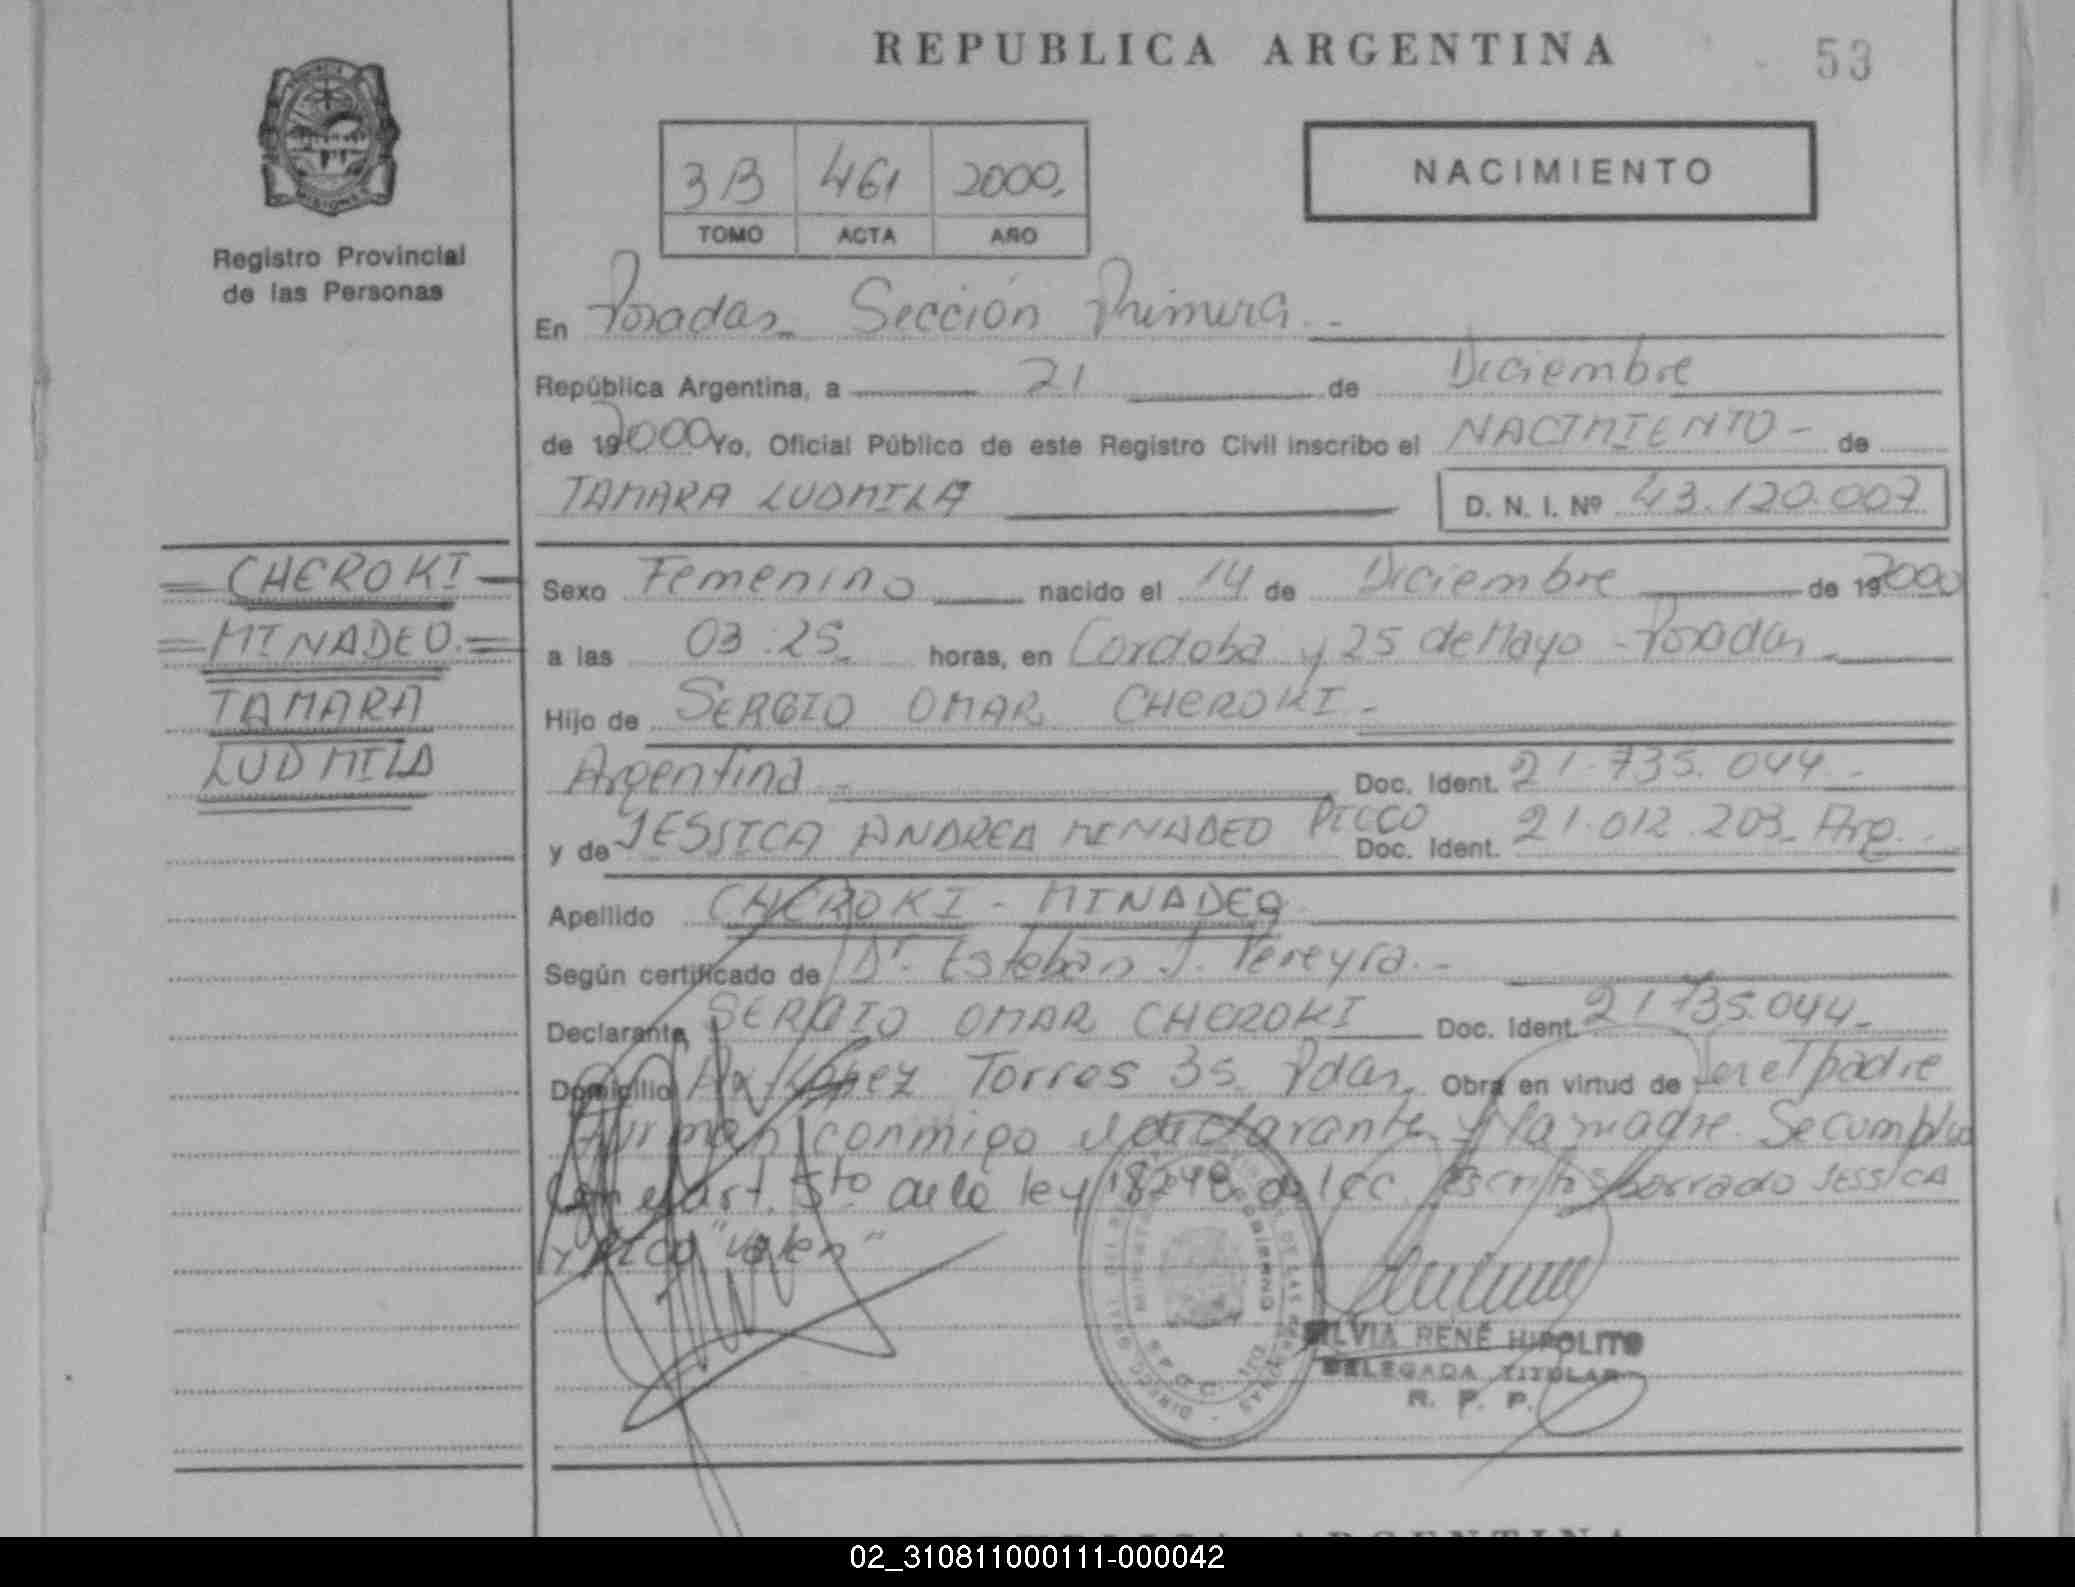 REPUBLICA ARGENTINA
53
3B 461 2000
TOMO ACTA AÑO
NACIMIENTO
Registro Provincial
de las Personas
En Posadas Sección Primera
República Argentina, a 21 de Diciembre
de 19 2000 Yo, Oficial Público de este Registro Civil inscribo el NACIMIENTO - de
TAMARA LUDMILA D. N. I. Nº 43.120.007
CHEROKI
MINADEO
TAMARA
LUDMILA
Sexo Femenino nacido el 14 de Diciembre de 19 2000
a las 03.25 horas, en Cordoba y 25 de Mayo - Posadas
Hijo de SERGIO OMAR CHEROKI -
Argentina Doc. Ident. 21.735.044 -
y de JESSICA ANDREA MINADEO PICCO Doc. Ident. 21.012.203 Arg.
Apellido CHEROKI - MINADEO
Según certificado de Dr. Esteban J. Pereyra. -
Declarante SERGIO OMAR CHEROKI Doc. Ident. 21735.044
Domicilio López Torres 35 Pdas, Obra en virtud de Ser el padre
Firman conmigo el declarante y la madre. Se cumplió
con el art. 5to de la ley 18248. borrado JESSICA
y Picco "valen"
SILVIA RENÉ HIPOLITO
DELEGADA TITULAR
R. P. P.
REPUBLICA ARGENTINA
02_310811000111-000042